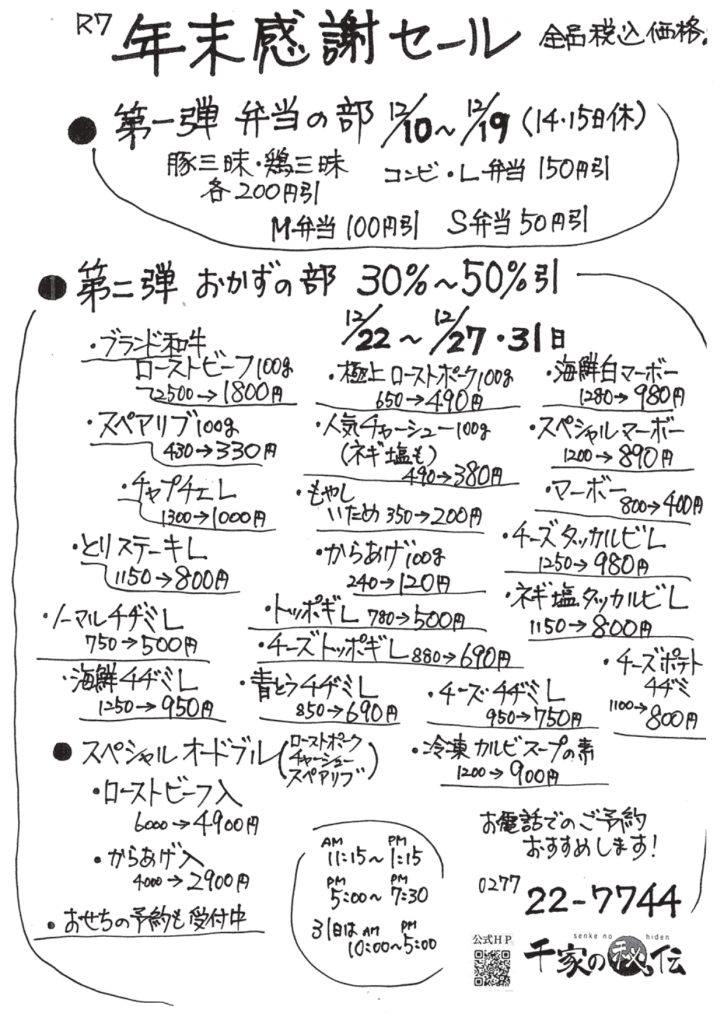 R7 年末感謝セール 全品税込価格。
● 第一弾 弁当の部 12/10～12/19(14・15日休)
豚三昧・鶏三昧
各200円引
コンビ・L弁当 150円引
M弁当 100円引 S弁当 50円引
● 第二弾 おかずの部 30%～50%引
12/22～12/27・31日
・ブランド和牛
ローストビーフ100g
2500→1800円
・極上ローストポーク100g
650→490円
・海鮮白マーボー
1280→980円
・スペアリブ100g
430→330円
・人気チャーシュー100g
(ネギ塩も)
490→380円
・スペシャルマーボー
1200→890円
・チャプチェL
1300→1000円
・もやし
いため 350→200円
・マーボー
800→400円
・とりステーキL
1150→800円
・からあげ100g
240→120円
・チーズタッカルビL
1250→980円
・ノーマルチヂミL
750→500円
・トッポギL 780→500円
・ネギ塩タッカルビL
1150→800円
・チーズトッポギL 880→690円
・海鮮チヂミL
1250→950円
・青とうチヂミL
850→690円
・チーズチヂミL
950→750円
・チーズポテト
チヂミ
1100→
800円
● スペシャルオードブル(ローストポーク
チャーシュー
スペアリブ)
・冷凍カルビスープの素
1200→900円
・ローストビーフ入
6000→4900円
・からあげ入
4000→2900円
・おせちの予約も受付中
AM 11:15～PM 1:15
PM 5:00～PM 7:30
31日は AM 10:00～PM 5:00
お電話でのご予約
おすすめします!
0277 22-7744
公式HP
senke no hiden
千家の秘伝